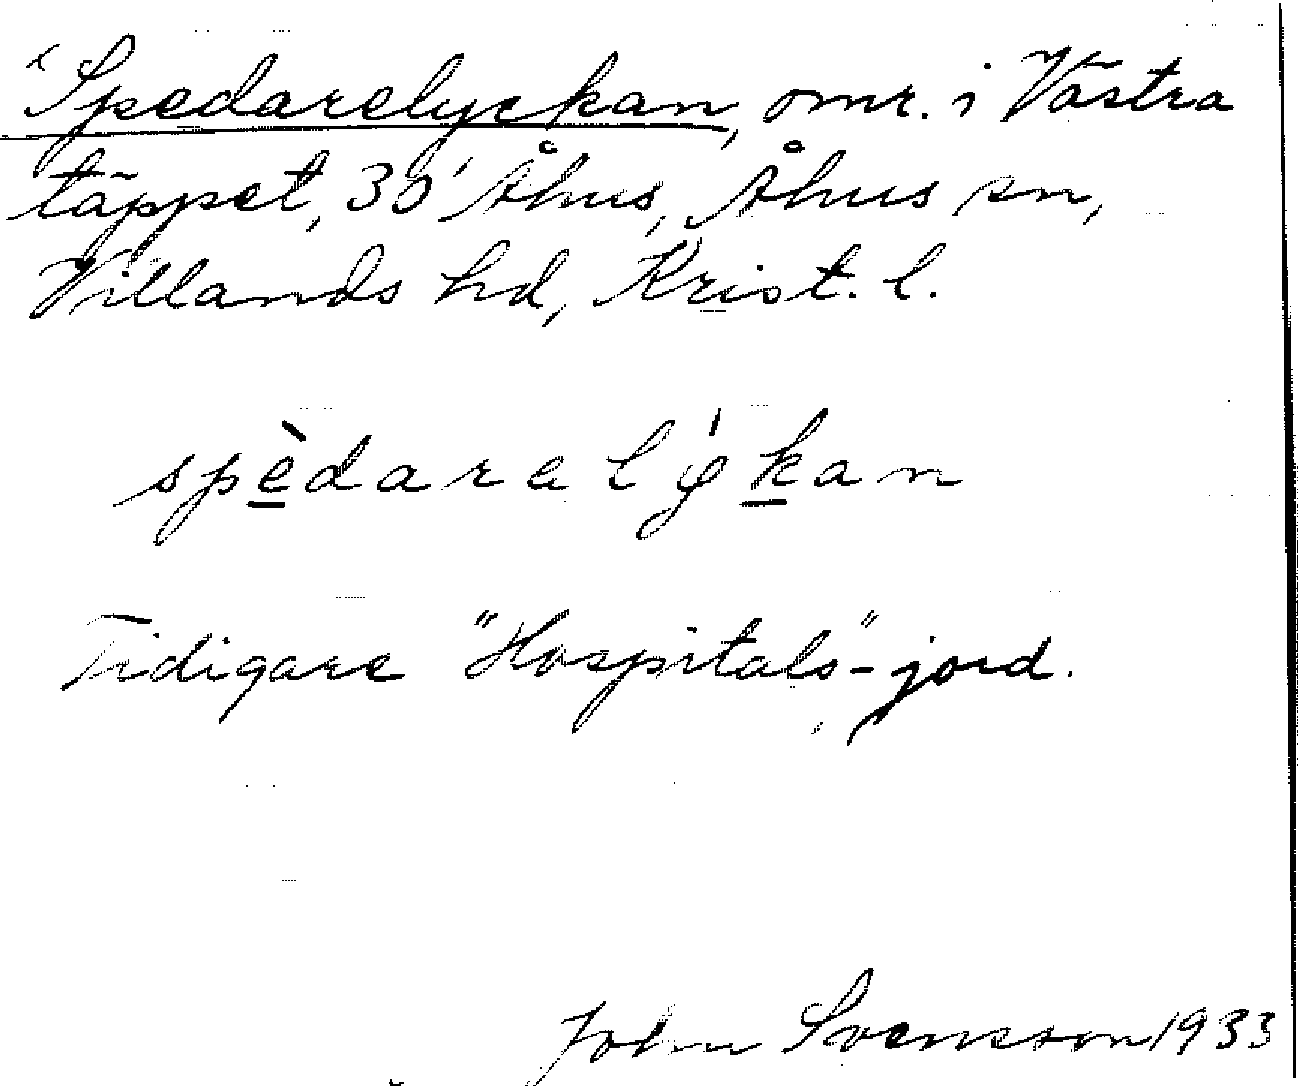 Spedarelyckan, omr. i Västra
täppet, 30' Åhus, Åhus sn,
Villands hd, Krist. l.
spèdaralýkan
Tidigare "Hospitals"-jord.
John Svensson 1933